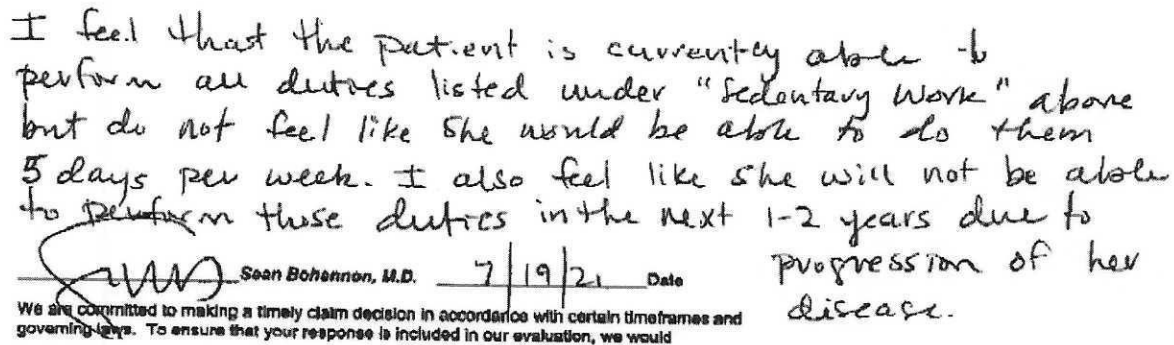 I feel that the patient is currently able to
perform all duties listed under "Sedentary Work" above
but do not feel like she would be able to do them
5 days per week. I also feel like she will not be able
to perform those duties in the next 1-2 years due to
progression of her
disease.
Sean Bohannon, M.D. 7/19/21 Date
We are committed to making a timely claim decision in accordance with certain timeframes and
governing laws. To ensure that your response is included in our evaluation, we would